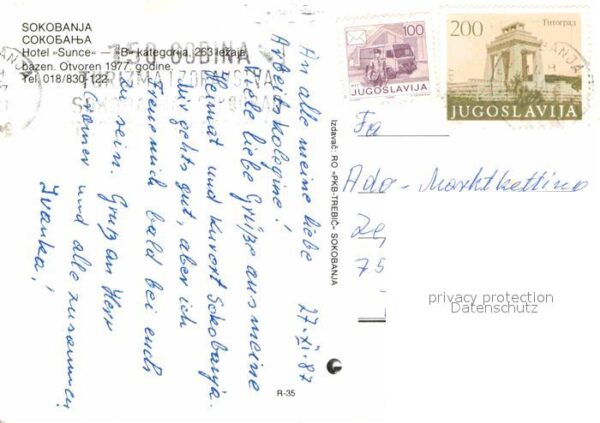 SOKOBANJA
СОКОБАЊА
Hotel »Sunce« — »B« kategorija, 263 ležaja,
bazen. Otvoren 1977. godine.
Tel. 018/830-122
GODINA
An alle meine liebe
Arbeitskologine!
Viele liebe Grüße aus meine
Heimat und Kurort Sokobanja.
Mir gehts gut, aber ich
freue mich bald bei euch
zu sein. Gruß an Herr
und alle zusammen
Ivanka!
27.XI.87
R-35
Izdavač: RO »PKB-TREBIČ« SOKOBANJA
100
JUGOSLAVIJA
200
Титоград
JUGOSLAVIJA
Fa
Ado-Marktkettino
75
privacy protection
Datenschutz